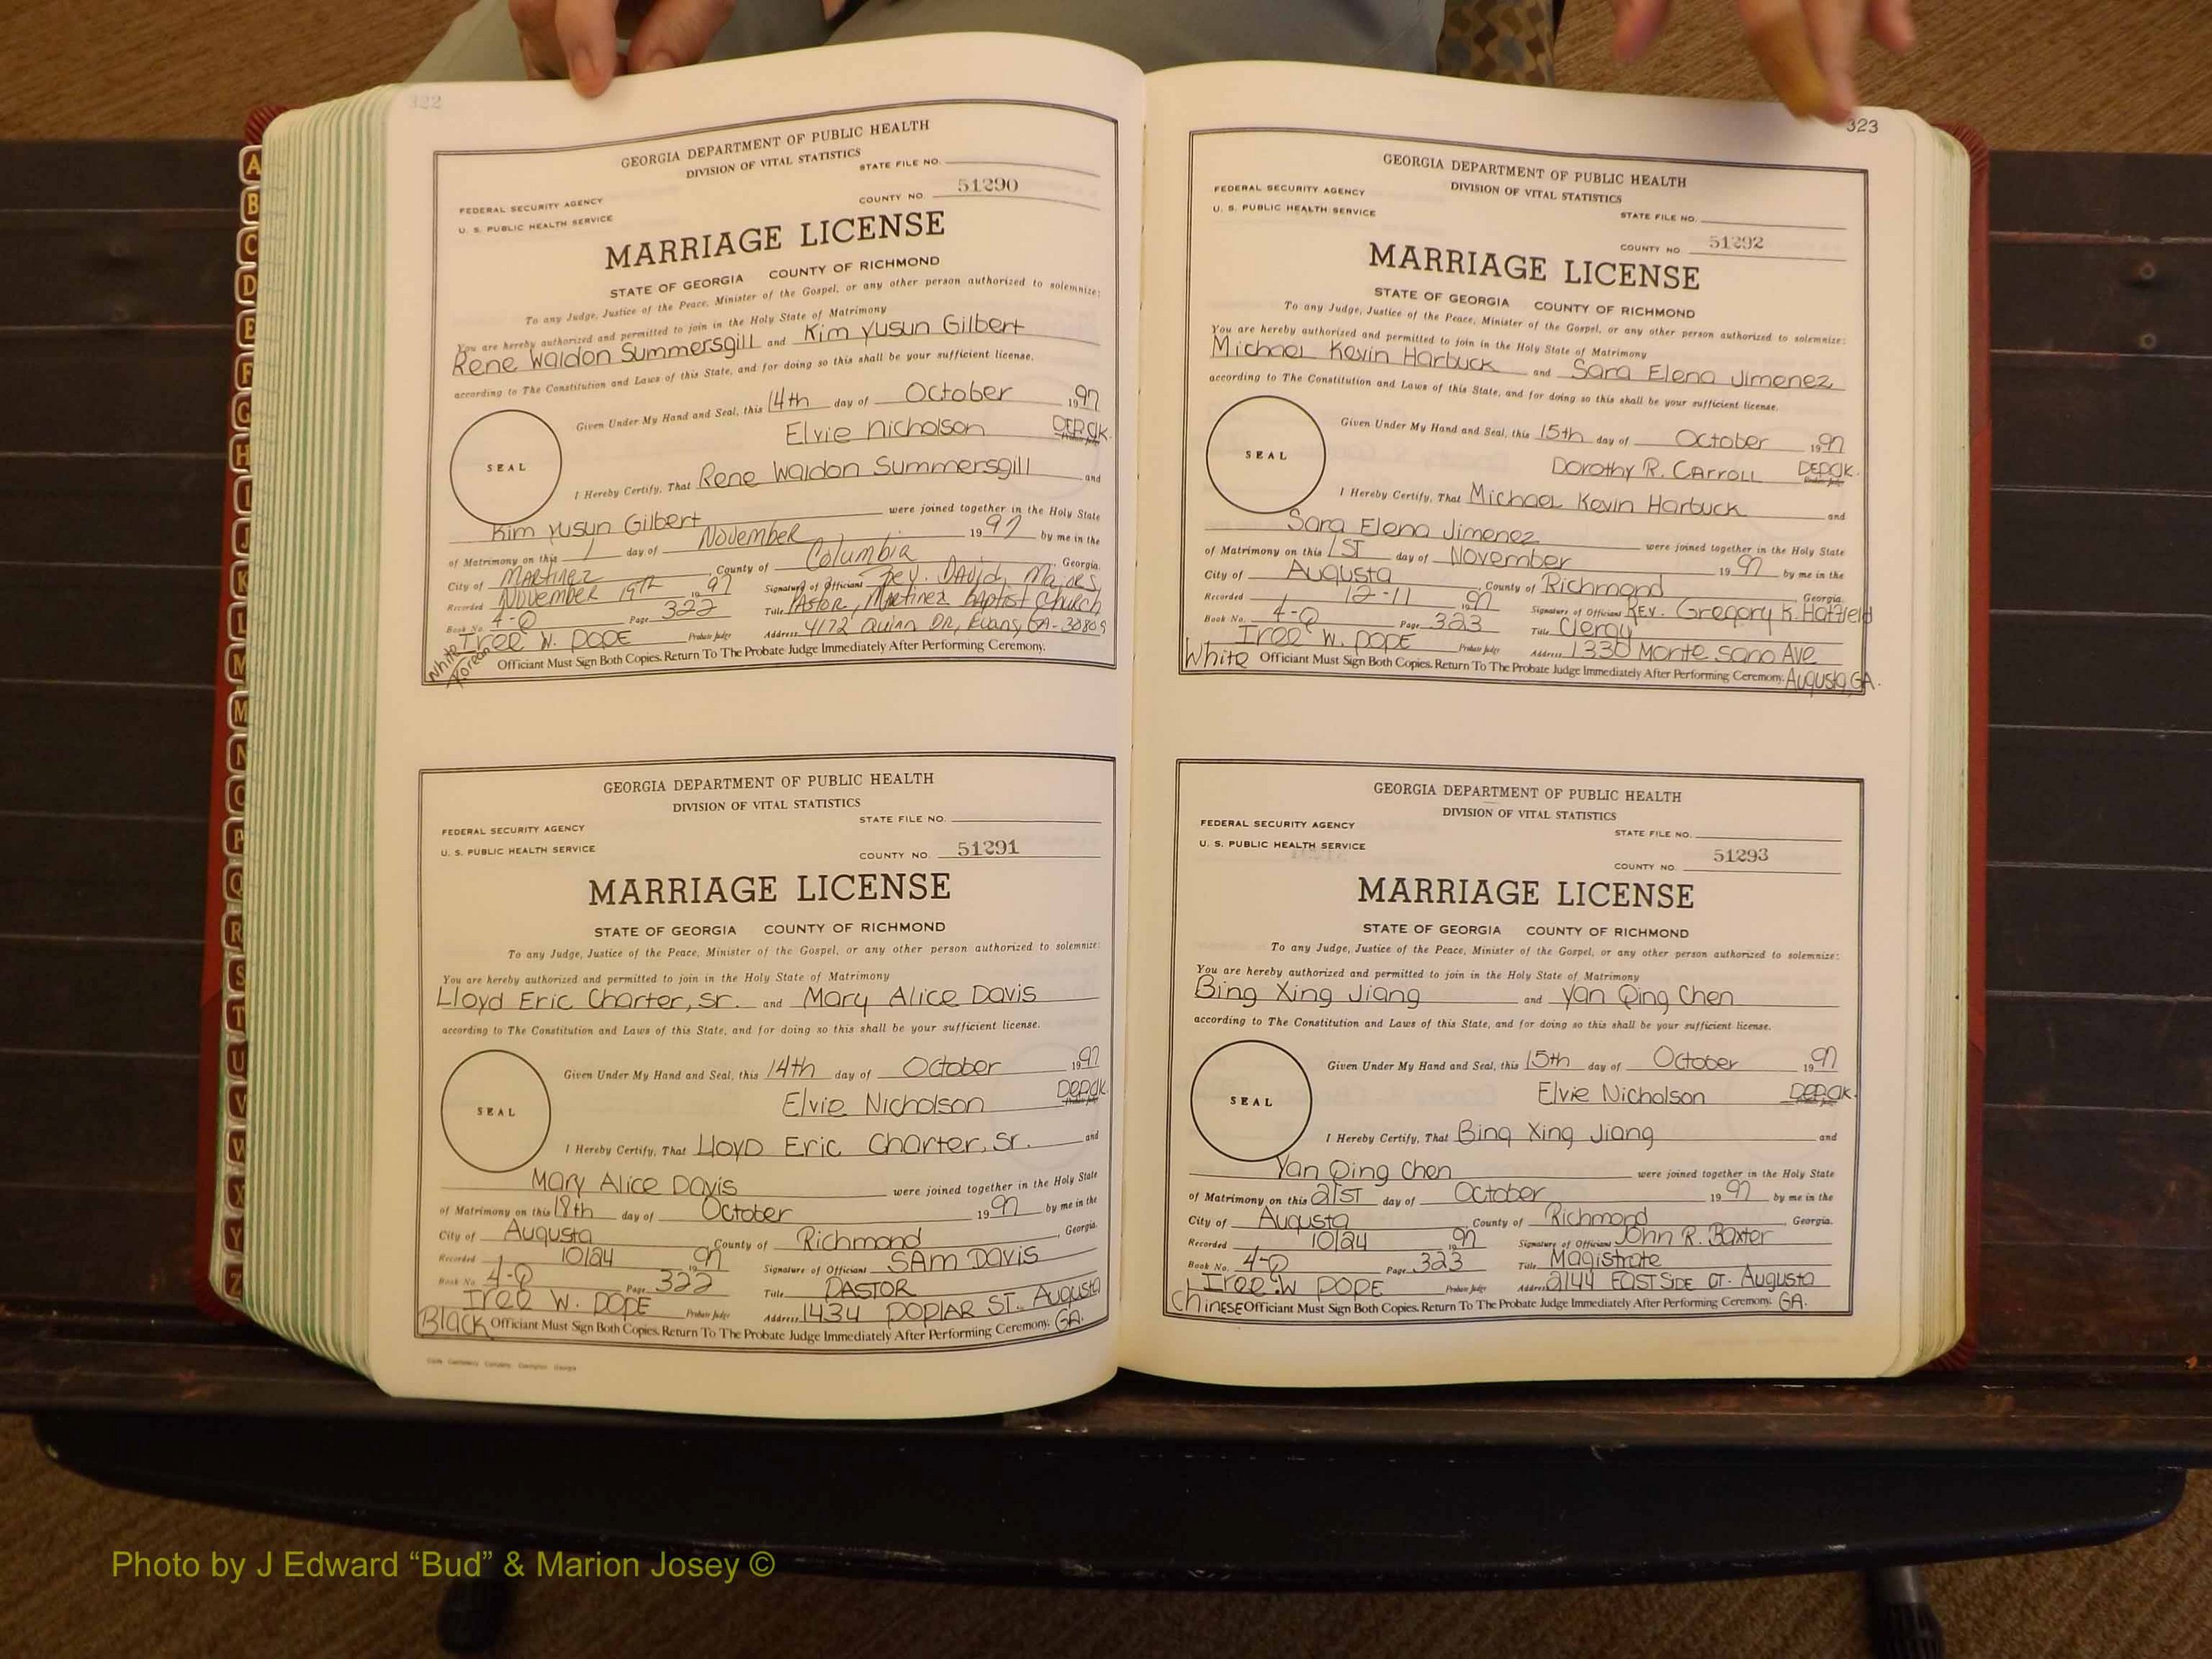 322
GEORGIA DEPARTMENT OF PUBLIC HEALTH
DIVISION OF VITAL STATISTICS
STATE FILE NO.
FEDERAL SECURITY AGENCY
U. S. PUBLIC HEALTH SERVICE
COUNTY NO. 51290
MARRIAGE LICENSE
STATE OF GEORGIA COUNTY OF RICHMOND
To any Judge, Justice of the Peace, Minister of the Gospel, or any other person authorized to solemnize:
You are hereby authorized and permitted to join in the Holy State of Matrimony
Rene Waldon Summersgill and Kim Yusun Gilbert
according to The Constitution and Laws of this State, and for doing so this shall be your sufficient license.
Given Under My Hand and Seal, this 14th day of October 1997
Elvie Nicholson DEP.CK.
Probate Judge
SEAL
I Hereby Certify, That Rene Waldon Summersgill and
Kim Yusun Gilbert were joined together in the Holy State
of Matrimony on this 1 day of November 1997 by me in the
City of Martinez, County of Columbia, Georgia.
Recorded November 19th 1997 Signature of Officiant Rev. David Majors
Book No. 4-Q Page 322 Title Pastor, Martinez Baptist Church
Iree W. Pope Probate Judge Address 4172 Quinn Dr, Evans, GA-30809
White Korean Officiant Must Sign Both Copies. Return To The Probate Judge Immediately After Performing Ceremony.
GEORGIA DEPARTMENT OF PUBLIC HEALTH
DIVISION OF VITAL STATISTICS
STATE FILE NO.
FEDERAL SECURITY AGENCY
U. S. PUBLIC HEALTH SERVICE
COUNTY NO. 51291
MARRIAGE LICENSE
STATE OF GEORGIA COUNTY OF RICHMOND
To any Judge, Justice of the Peace, Minister of the Gospel, or any other person authorized to solemnize:
You are hereby authorized and permitted to join in the Holy State of Matrimony
Lloyd Eric Charter, Sr. and Mary Alice Davis
according to The Constitution and Laws of this State, and for doing so this shall be your sufficient license.
Given Under My Hand and Seal, this 14th day of October 1997
Elvie Nicholson DEP.CK.
Probate Judge
SEAL
I Hereby Certify, That Lloyd Eric Charter, Sr. and
Mary Alice Davis were joined together in the Holy State
of Matrimony on this 18th day of October 1997 by me in the
City of Augusta, County of Richmond, Georgia.
Recorded 10/24 1997 Signature of Officiant SAM DAVIS
Book No. 4-Q Page 322 Title PASTOR
Iree W. Pope Probate Judge Address 1434 POPLAR ST. Augusta
Black Officiant Must Sign Both Copies. Return To The Probate Judge Immediately After Performing Ceremony. GA.
323
GEORGIA DEPARTMENT OF PUBLIC HEALTH
DIVISION OF VITAL STATISTICS
FEDERAL SECURITY AGENCY
U. S. PUBLIC HEALTH SERVICE
STATE FILE NO.
COUNTY NO. 51292
MARRIAGE LICENSE
STATE OF GEORGIA COUNTY OF RICHMOND
To any Judge, Justice of the Peace, Minister of the Gospel, or any other person authorized to solemnize:
You are hereby authorized and permitted to join in the Holy State of Matrimony
Michael Kevin Harbuck and Sara Elena Jimenez
according to The Constitution and Laws of this State, and for doing so this shall be your sufficient license.
Given Under My Hand and Seal, this 15th day of October 1997
Dorothy R. Carroll DEP.CK.
Probate Judge
SEAL
I Hereby Certify, That Michael Kevin Harbuck and
Sara Elena Jimenez were joined together in the Holy State
of Matrimony on this 1ST day of November 1997 by me in the
City of Augusta, County of Richmond, Georgia.
Recorded 12-11 1997 Signature of Officiant Rev. Gregory K. Hatfield
Book No. 4-Q Page 323 Title Clergy
Iree W. Pope Probate Judge Address 1330 Monte Sano Ave
White Officiant Must Sign Both Copies. Return To The Probate Judge Immediately After Performing Ceremony. Augusta, GA.
GEORGIA DEPARTMENT OF PUBLIC HEALTH
DIVISION OF VITAL STATISTICS
FEDERAL SECURITY AGENCY
U. S. PUBLIC HEALTH SERVICE
STATE FILE NO.
COUNTY NO. 51293
MARRIAGE LICENSE
STATE OF GEORGIA COUNTY OF RICHMOND
To any Judge, Justice of the Peace, Minister of the Gospel, or any other person authorized to solemnize:
You are hereby authorized and permitted to join in the Holy State of Matrimony
Bing Xing Jiang and Yan Qing Chen
according to The Constitution and Laws of this State, and for doing so this shall be your sufficient license.
Given Under My Hand and Seal, this 15th day of October 1997
Elvie Nicholson DEP.CK.
Probate Judge
SEAL
I Hereby Certify, That Bing Xing Jiang and
Yan Qing Chen were joined together in the Holy State
of Matrimony on this 21ST day of October 1997 by me in the
City of Augusta, County of Richmond, Georgia.
Recorded 10/24 1997 Signature of Officiant John R. Baxter
Book No. 4-Q Page 323 Title Magistrate
Iree W Pope Probate Judge Address 2144 EASTSIDE CT. Augusta
Chinese Officiant Must Sign Both Copies. Return To The Probate Judge Immediately After Performing Ceremony. GA.
A
B
C
D
E
F
G
H
I
J
K
L
M
M
N
O
P
Q
R
S
T
U
V
W
X
Y
Z
Photo by J Edward “Bud” & Marion Josey ©